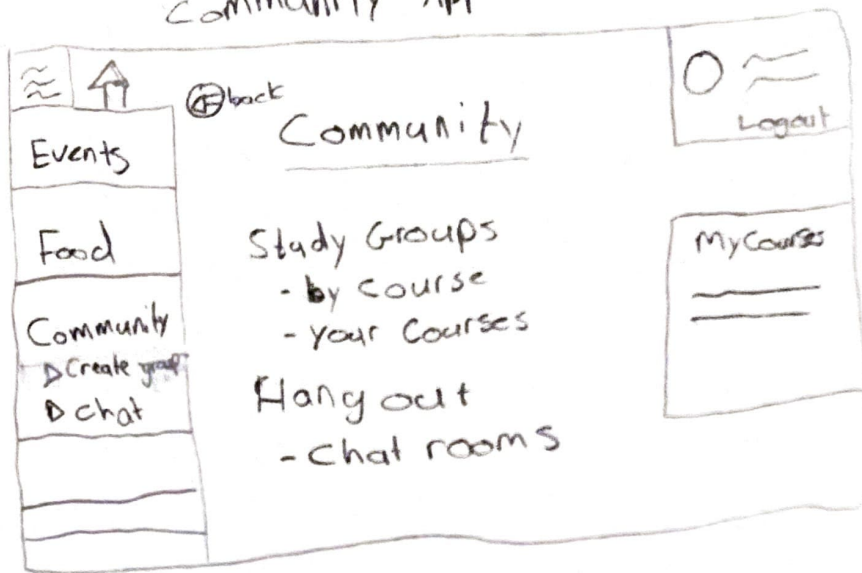 Community App
back
Community
Logout
Events
Food
Community
Create group
chat
Study Groups
- by course
- your courses
Hang out
- Chat rooms
My Courses